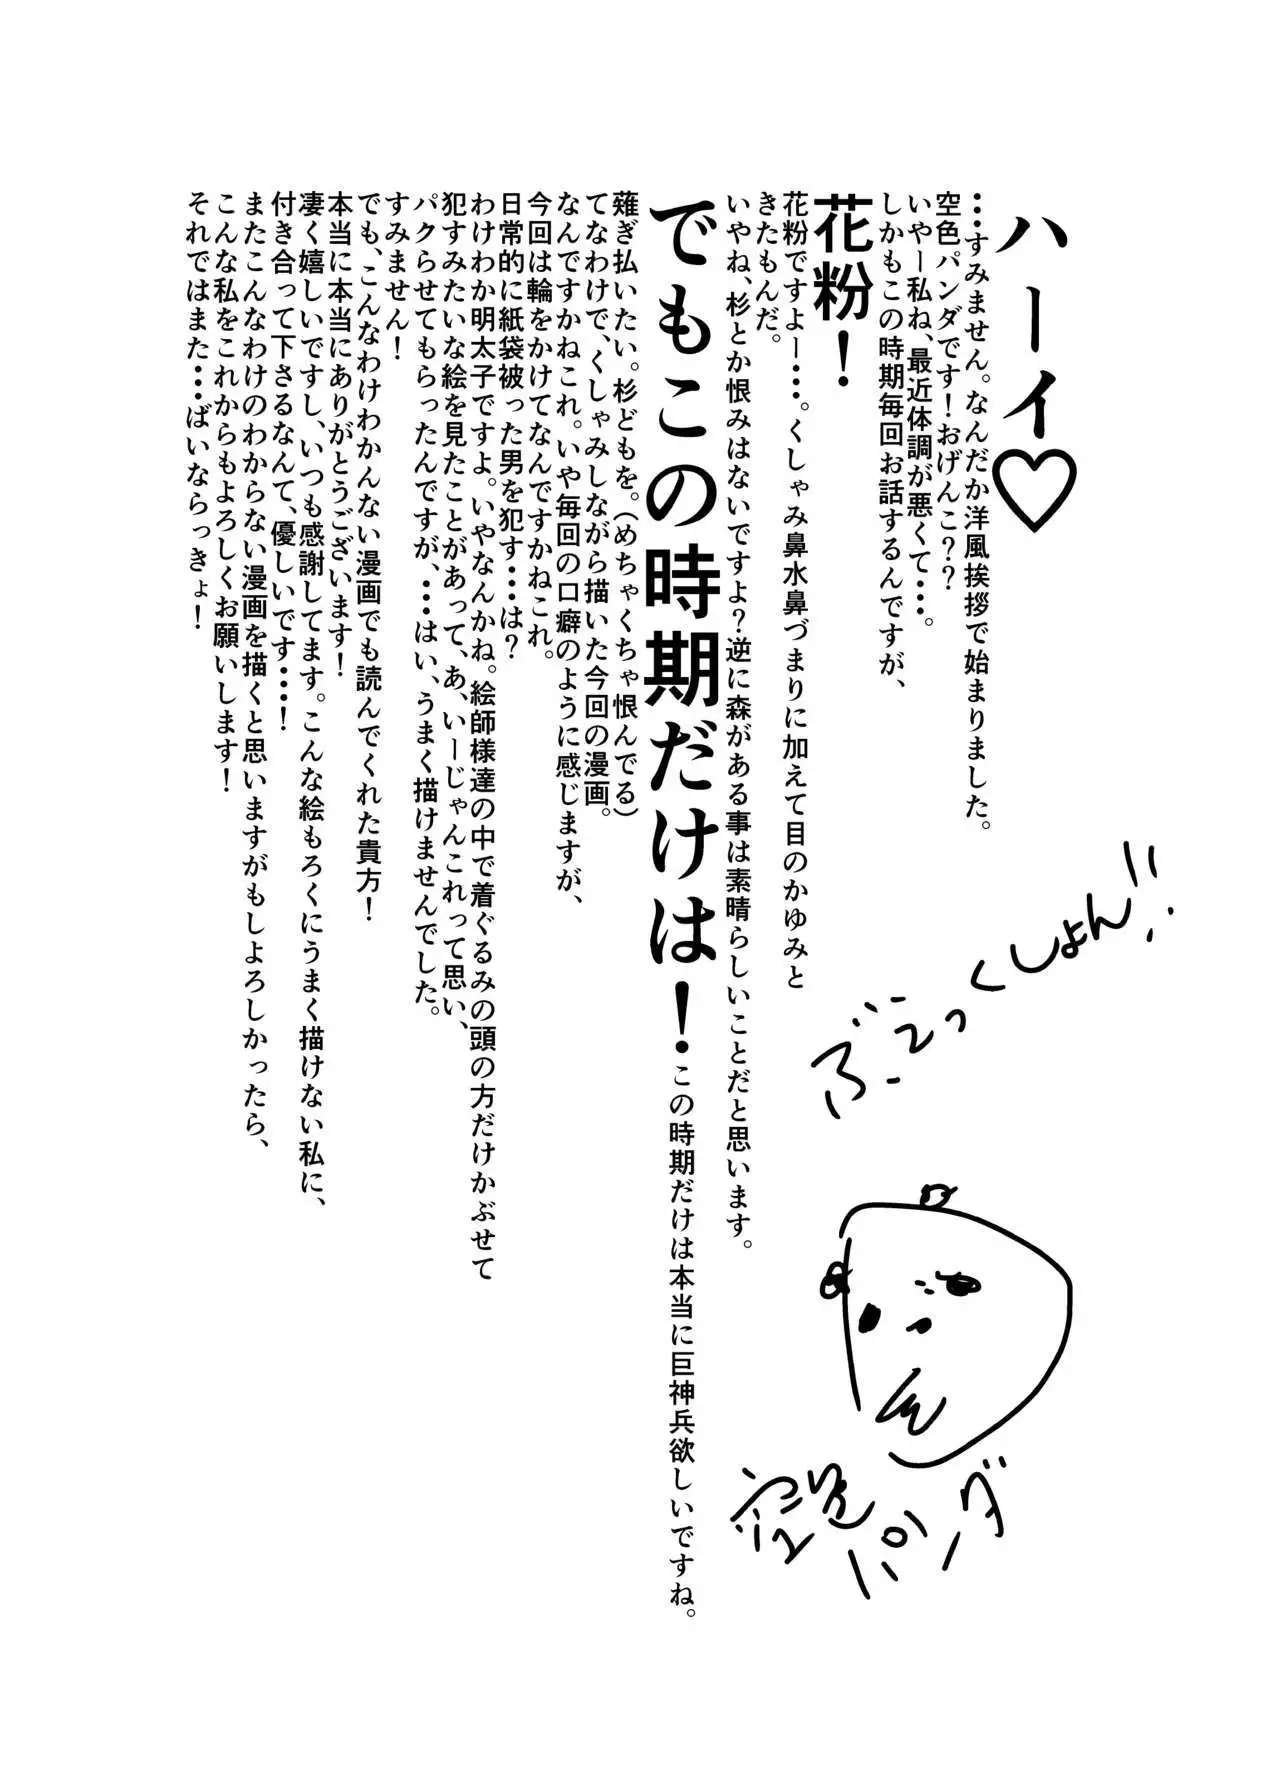 ハーイ♡
…すみません。なんだか洋風挨拶で始まりました。
空色パンダです！おげんこ？？
いやー私ね、最近体調が悪くて…。
しかもこの時期毎回お話するんですが、
花粉！
花粉ですよー…。くしゃみ鼻水鼻づまりに加えて目のかゆみと
きたもんだ。
いやね、杉とか恨みはないですよ？逆に森がある事は素晴らしいことだと思います。
でもこの時期だけは！この時期だけは本当に巨神兵欲しいですね。
薙ぎ払いたい。杉どもを。（めちゃくちゃ恨んでる）
てなわけで、くしゃみしながら描いた今回の漫画。
なんですかねこれ。いや毎回の口癖のように感じますが、
今回は輪をかけてなんですかねこれ。
日常的に紙袋被った男を犯す…は？
わけわか明太子ですよ。いやなんかね。絵師様達の中で着ぐるみの頭の方だけかぶせて
犯すみたいな絵を見たことがあって、あ、いーじゃんこれって思い、
パクらせてもらったんですが、…はい、うまく描けませんでした。
すみません！
でも、こんなわけわかんない漫画でも読んでくれた貴方！
本当に本当にありがとうございます！
凄く嬉しいですし、いつも感謝してます。こんな絵もろくにうまく描けない私に、
付き合って下さるなんて、優しいです…！
またこんなわけのわからない漫画を描くと思いますがもしよろしかったら、
こんな私をこれからもよろしくお願いします！
それではまた…ばいならっきょ！
ぶえっくしょん!!
空色パンダ